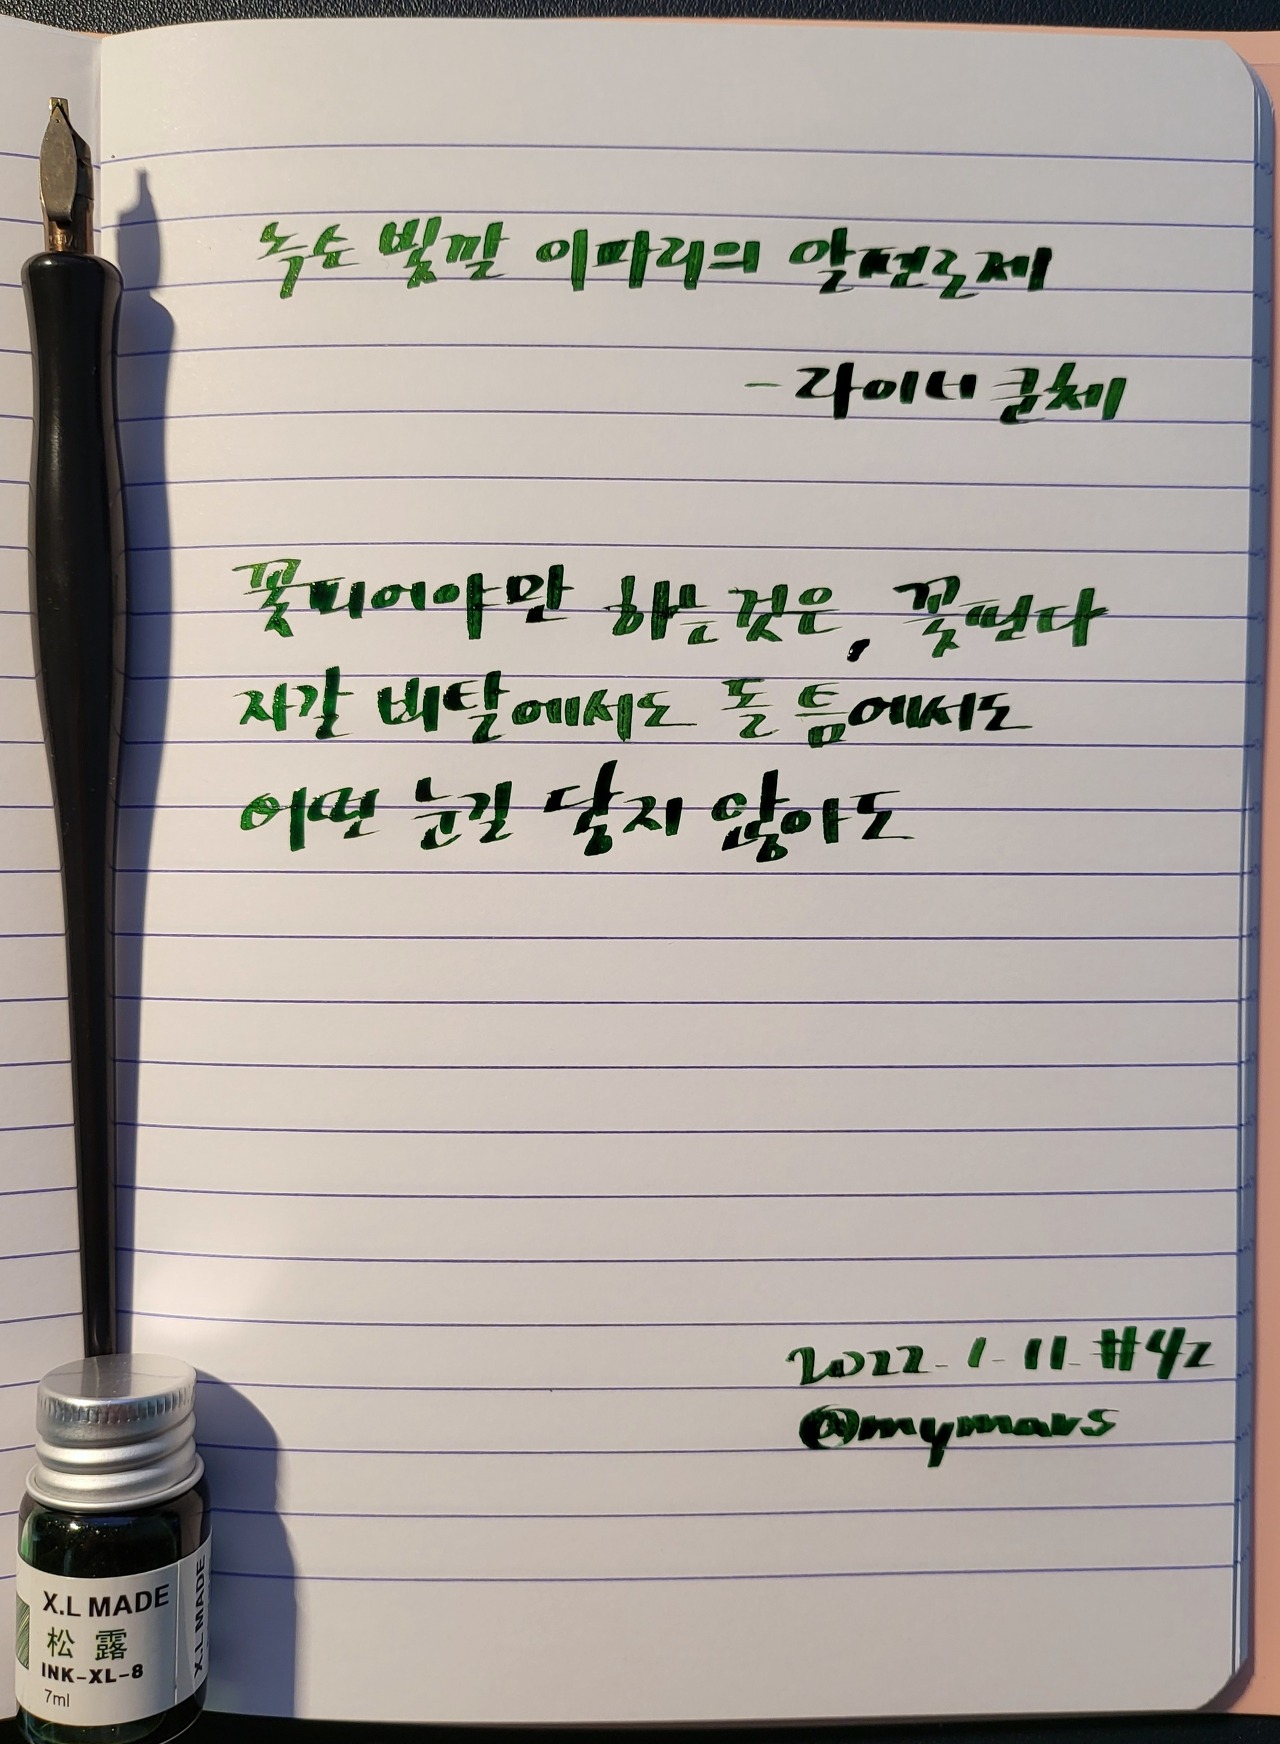 녹슨 빛깔 이파리의 알펜로제
- 라이너 쿤체
꽃피어야만 하는것은, 꽃핀다
자갈 비탈에서도 돌 틈에서도
어떤 눈길 닿지 않아도
2022. 1. 11. #42
@mymars
X.L MADE
松露
INK-XL-8
7ml
X.L MADE